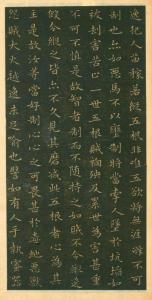 逸犯人苗稼若縱五根非唯五欲將無崖畔不可
制也亦如惡馬不以轡制將當牽人墜於坑埳如
被劫害苦止一世五根賊禍殃及累世為害甚重
不可不慎是故智者制而不隨持之如賊不令縱逸
假令縱之皆亦不久見其磨滅此五根者心為其
主是故汝等當好制心心之可畏甚於毒蛇惡獸
怨賊大火越逸未足喻也譬如有人手執蜜器